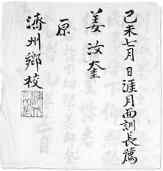 己未七月日涯月面訓長薦
姜汝奎
原
濟州鄕校